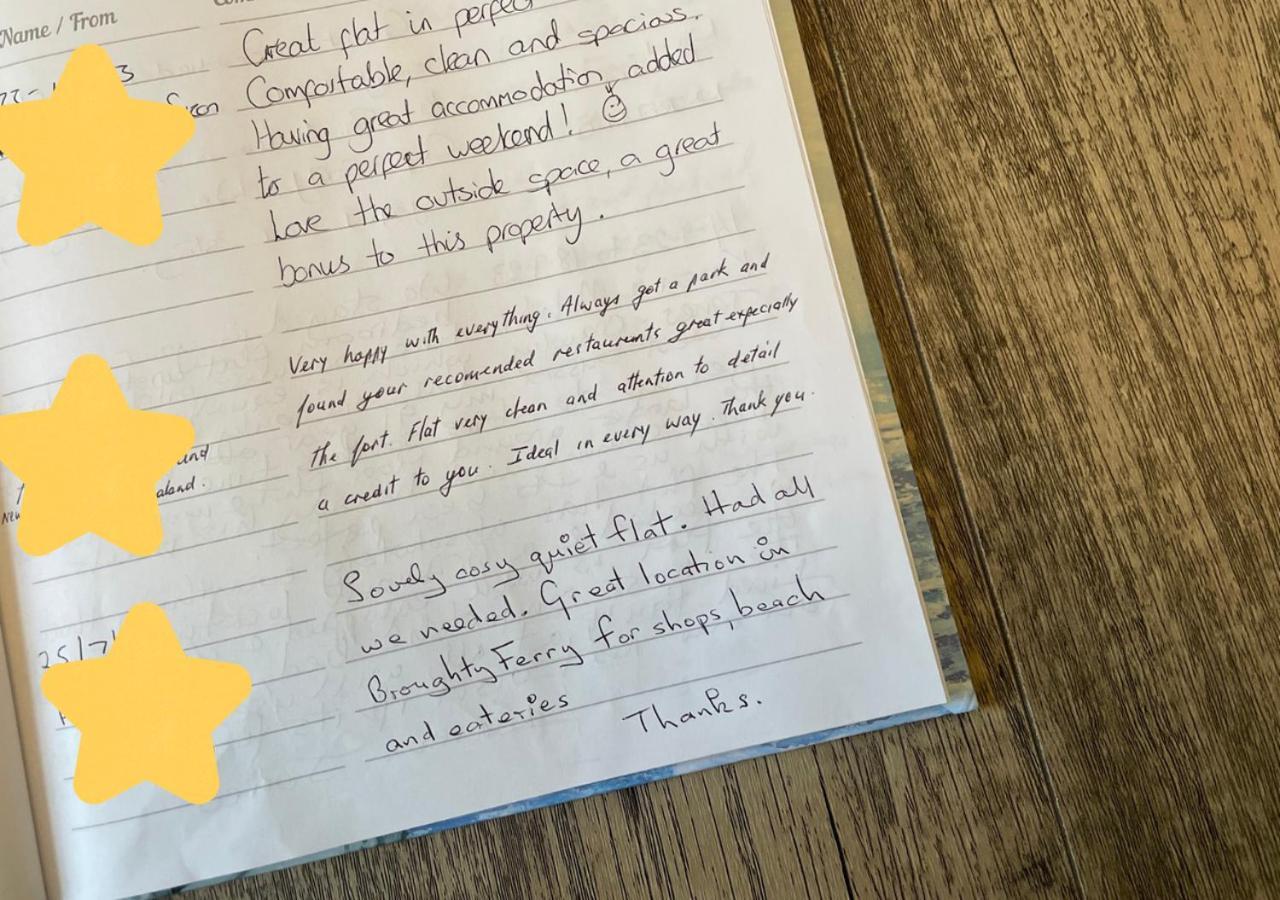 Name / From
Great flat in perfect
3
Comfortable, clean and spacious.
Having great accommodation, added
to a perfect weekend! ☺
Love the outside space, a great
bonus to this property.
Very happy with everything. Always got a park and
found your recomended restaurants great expecially
the fort. Flat very clean and attention to detail
a credit to you. Ideal in every way. Thank you.
und
aland.
New
Lovely cosy quiet flat. Had all
we needed. Great location in
Broughty Ferry for shops, beach
and eateries Thanks.
25/7/